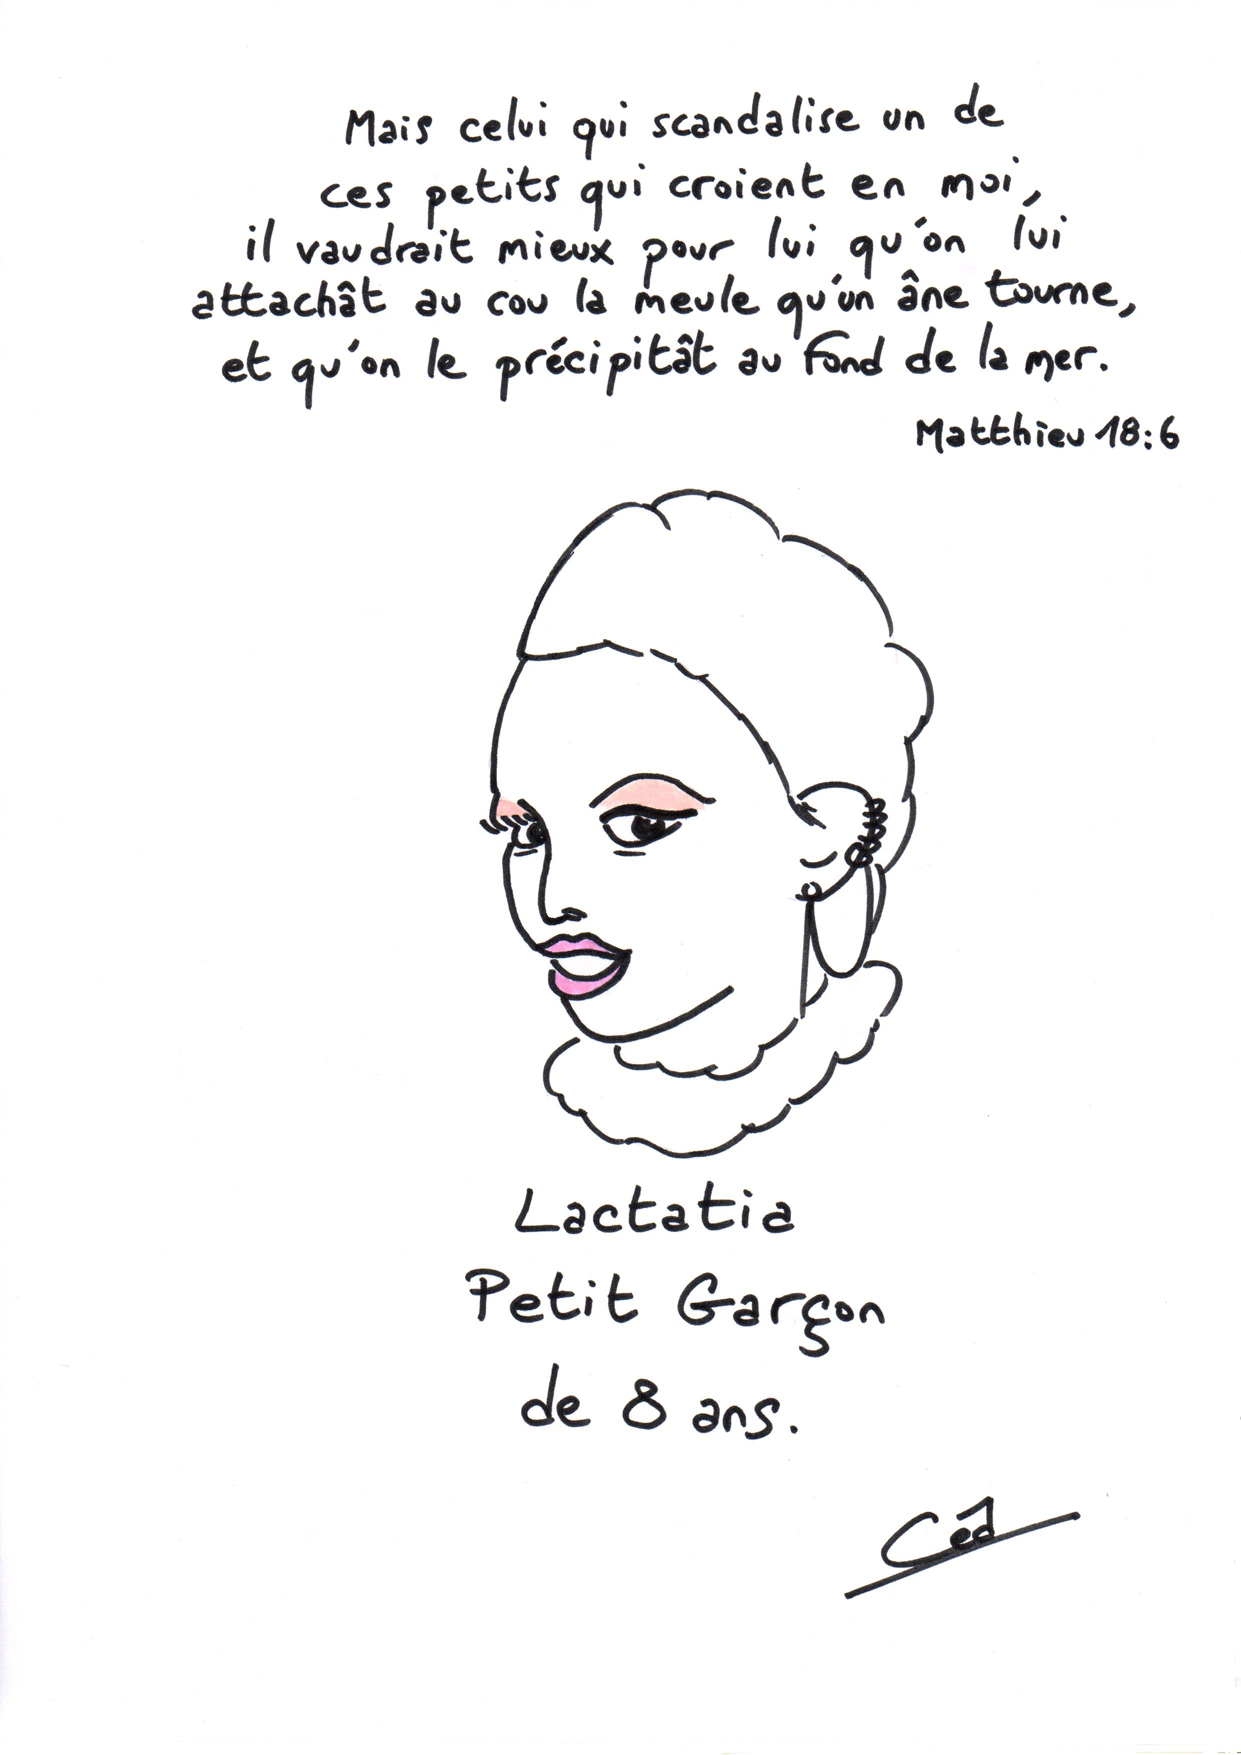 Mais celui qui scandalise un de
ces petits qui croient en moi,
il vaudrait mieux pour lui qu'on lui
attachât au cou la meule qu'un âne tourne,
et qu'on le précipitât au fond de la mer.
Matthieu 18:6
Lactatia
Petit Garçon
de 8 ans.
Céd